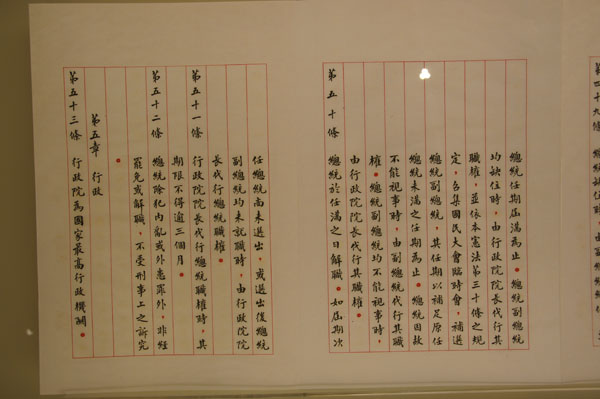 第四十九條
總統任期屆滿為止。總統副總統
均缺位時，由行政院院長代行其
職權，並依本憲法第三十條之規
定，召集國民大會臨時會，補選
總統副總統，其任期以補足原任
總統未滿之任期為止。總統因故
不能視事時，由副總統代行其職
權。總統副總統均不能視事時，
由行政院院長代行其職權。
第五十條 總統於任滿之日解職。如屆期次
任總統尚未選出，或選出後總統
副總統均未就職時，由行政院院
長代行總統職權。
第五十一條 行政院院長代行總統職權時，其
期限不得逾三個月。
第五十二條 總統除犯內亂或外患罪外，非經
罷免或解職，不受刑事上之訴究
。
第五章 行政
第五十三條 行政院為國家最高行政機關。